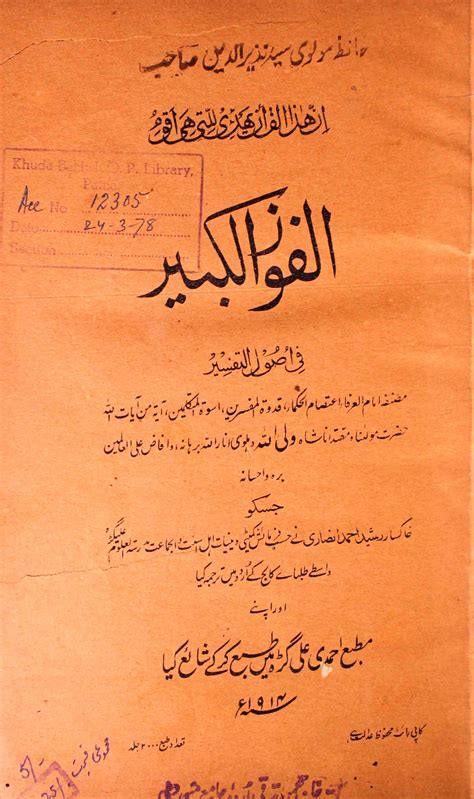 حافظ مولوی سید نذیر الدین صاحب
ان هذا القرآن يهدى للتى هى اقوم
Khuda Bakhsh O. P. Library,
Acc No 12305
Date 24-3-78
Section
الفوز الکبیر
فی اصول التفسیر
مصنفہ امام العرفا، اعتصام الحکما، قدوۃ المفسرین، اسوۃ المتکلمین، آیۃ من آیات اللہ
حضرت مولانا و مقتدانا شاہ ولی اللہ دہلوی انار اللہ برہانہ، وافاض علی العالمین
برہ و احسانہ
جسکو
خاکسار رشید احمد انصاری نے حسب فرمائش کمیٹی دینیات اہل سنت و الجماعت مدرسۃ العلوم علیگڑھ
واسطے طلباے کالج کے اُردو میں ترجمہ کیا
اور اپنے
مطبع احمدی علی گڑھ میں طبع کر کے شایع کیا
۱۹۱۴ء
کاپی رائٹ محفوظ
تعداد طبع ۲۰۰۰ جلد
قیمت